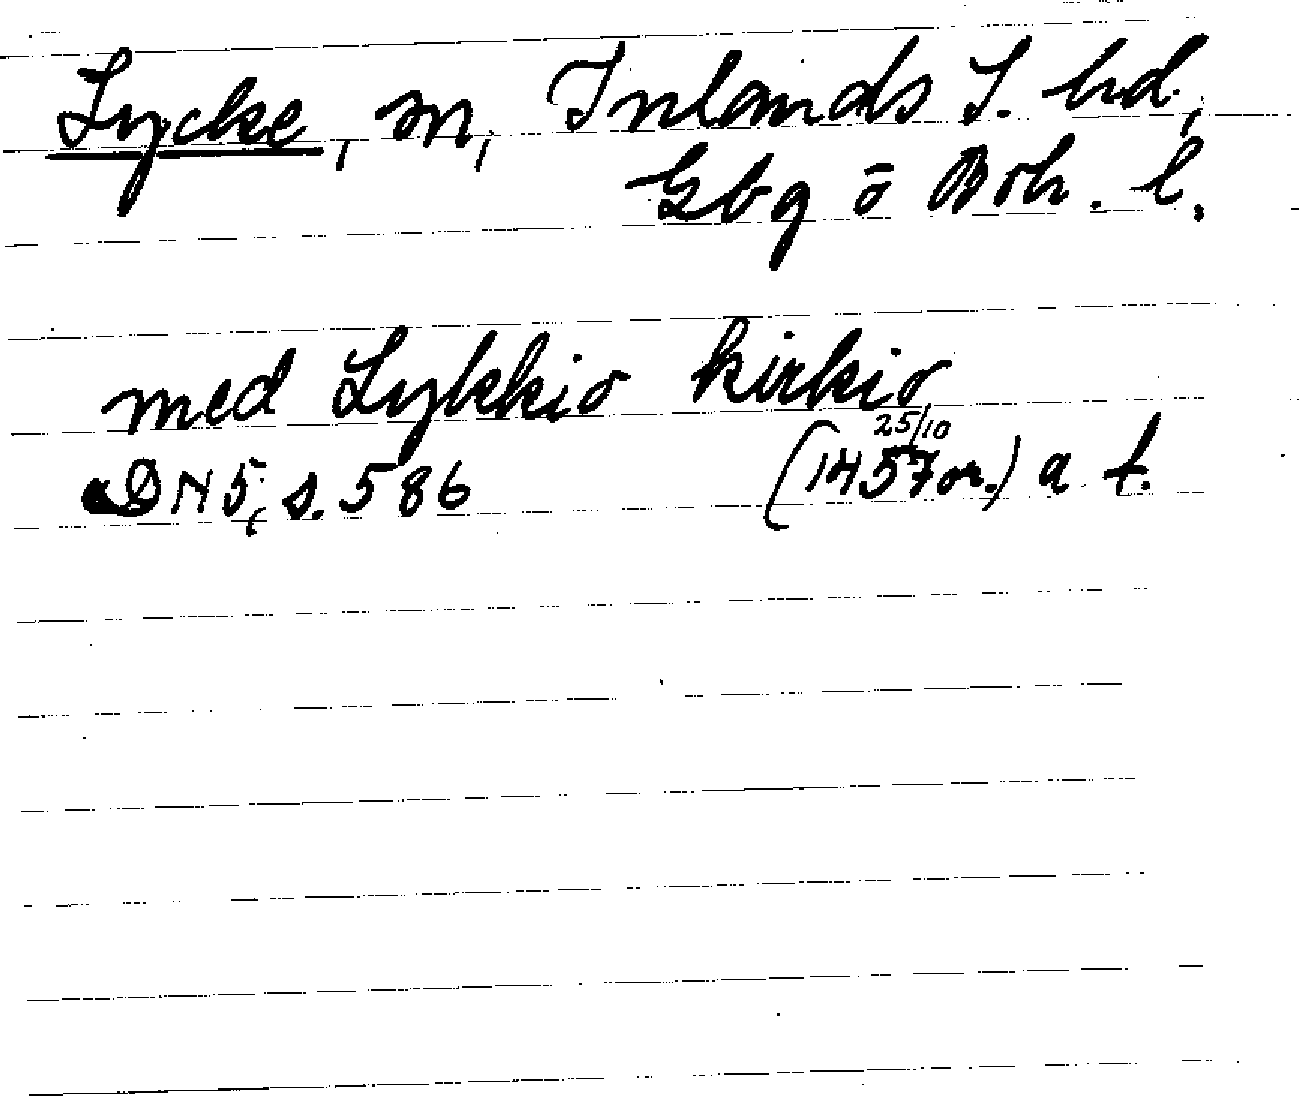 Lycke, sn, Inlands S. hd,
Gbg o Boh. l.
med Lykkio kirkio
DN 5, s. 586 (25/10 1457 or.) a f.